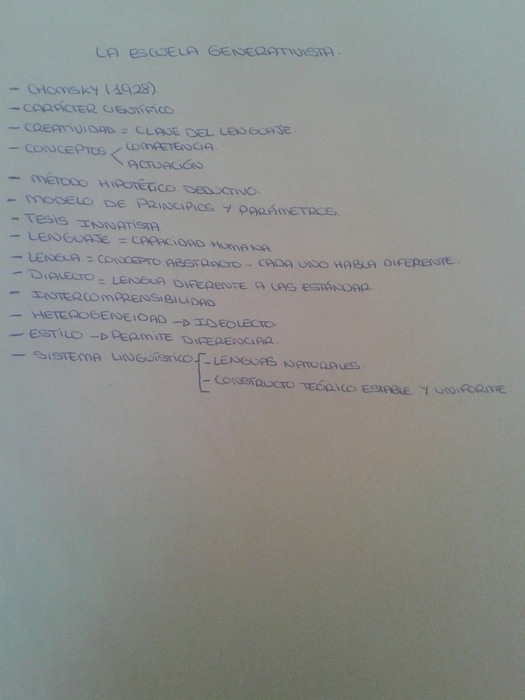 LA ESCUELA GENERATIVISTA.
- CHOMSKY (1928)
- CARÁCTER CIENTÍFICO
- CREATIVIDAD = CLAVE DEL LENGUAJE
- CONCEPTOS < COMPETENCIA.
ACTUACIÓN.
- MÉTODO HIPOTÉTICO DEDUCTIVO.
- MODELO DE PRINCIPIOS Y PARÁMETROS.
- TESIS INNATISTA
- LENGUAJE = CAPACIDAD HUMANA.
- LENGUA = CONCEPTO ABSTRACTO - CADA UNO HABLA DIFERENTE.
- DIALECTO = LENGUA DIFERENTE A LAS ESTÁNDAR.
- INTERCOMPRENSIBILIDAD
- HETEROGENEIDAD → IDEOLECTO
- ESTILO → PERMITE DIFERENCIAR.
- SISTEMA LINGÜÍSTICO [ - LENGUAS NATURALES.
- CONSTRUCTO TEÓRICO ESTABLE Y UNIFORME